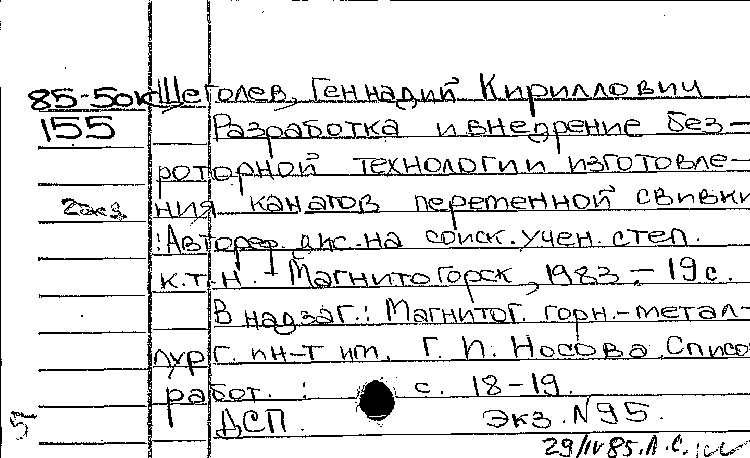 85-50к Щеголев, Геннадий Кириллович
155 Разработка и внедрение без-
роторной технологии изготовле-
2экз ния канатов переменной свивки
: Автореф. дис. на соиск. учен. степ.
к.т.н. - Магнитогорск, 1983. - 19 с.
В надзаг.: Магнитог. горн.-метал-
лург. ин-т им. Г. И. Носова. Списо
работ. : с. 18-19.
ДСП. Экз. N 95.
29/IV 85. Л. С.